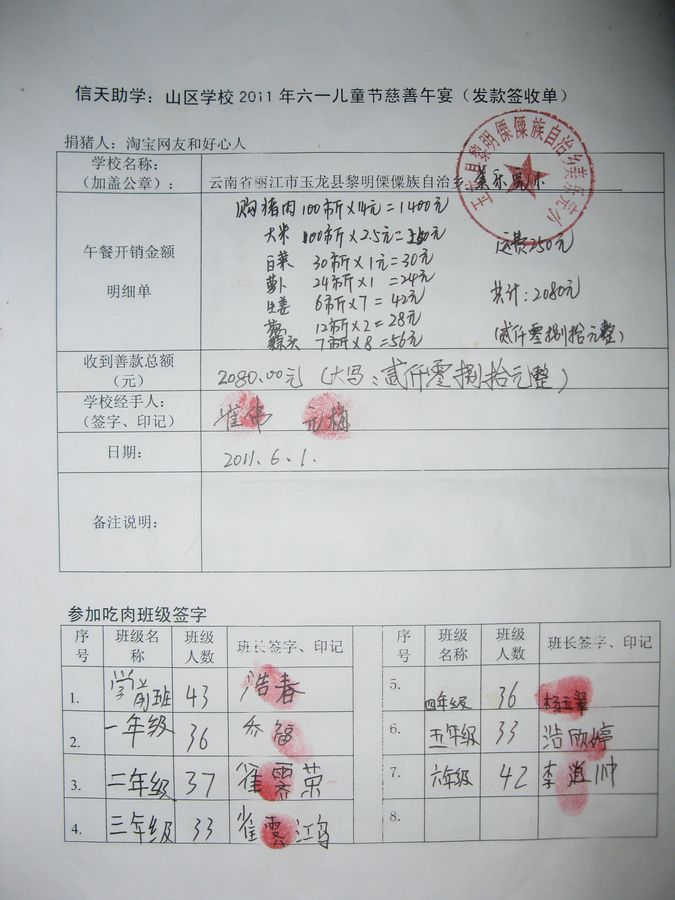 信天助学：山区学校2011年六一儿童节慈善午宴（发款签收单）
捐猪人：淘宝网友和好心人
学校名称：
（加盖公章）：
云南省丽江市玉龙县黎明傈僳族自治乡
午餐开销金额
明细单
购猪肉100市斤×14元=1400元
大米 100市斤×2.5元=250元
白菜 30市斤×1元=30元
萝卜 24市斤×1=24元
生姜 6市斤×7=42元
12市斤×2=28元
7市斤×8=56元
运费250元
共计：2080元
（贰仟零捌拾元整）
收到善款总额
（元）
2080.00元（大写：贰仟零捌拾元整）
学校经手人：
（签字、印记）
崔伟 元梅
日期：
2011.6.1.
备注说明：
参加吃肉班级签字
序号 班级名称 班级人数 班长签字、印记
1. 学前班 43 浩春
2. 一年级 36 福
3. 二年级 37 崔雰荣
4. 三年级 33 崔雲鸿
序号 班级名称 班级人数 班长签字、印记
5. 四年级 36 杨玉翠
6. 五年级 33 浩欣婷
7. 六年级 42 李道帅
8.